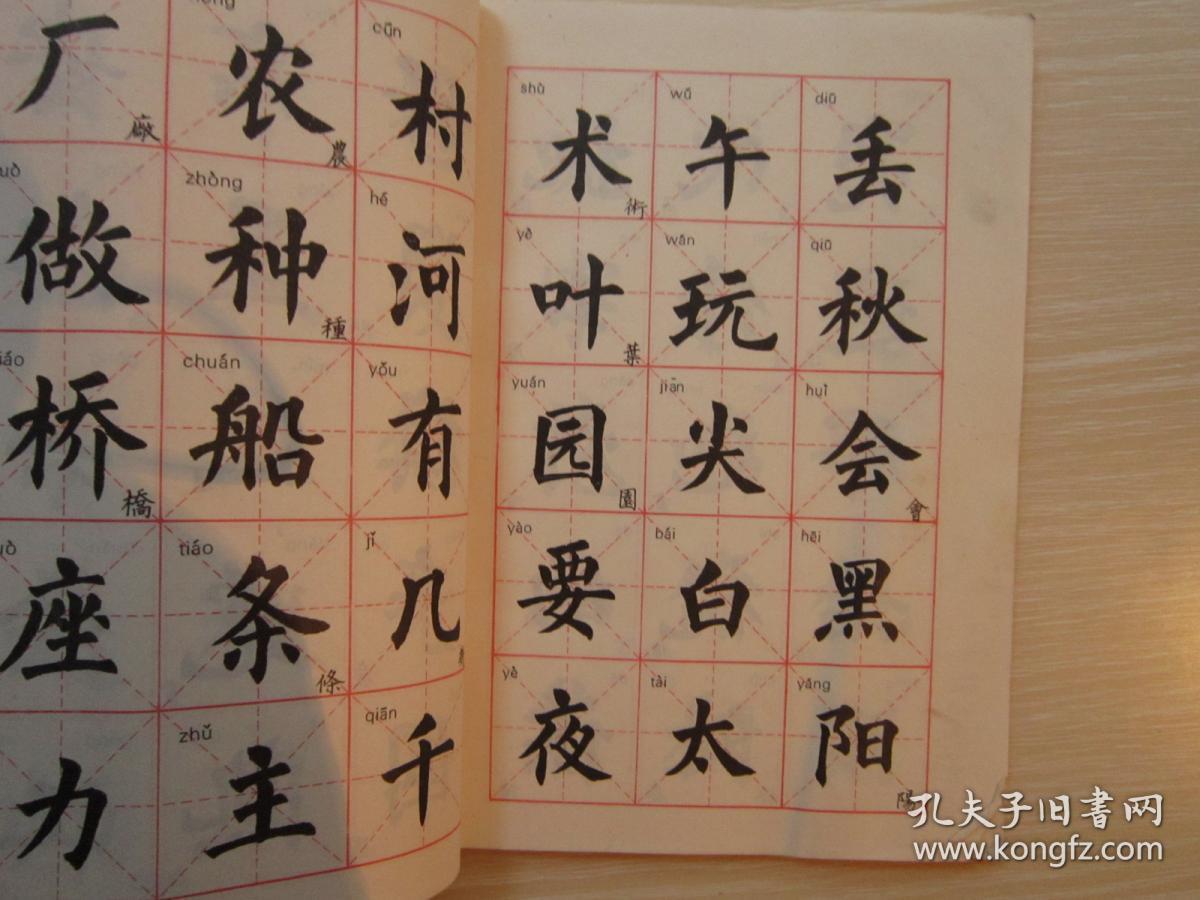 厂 农 cūn
廠 農 村
zhòng hé
做 种 河
種
chuán yǒu
桥 船 有
橋
tiáo jǐ
座 条 几
條
zhǔ qiān
力 主 千
shù wǔ diū
术 午 丢
術
yè wán qiū
叶 玩 秋
葉
yuán jiān huì
园 尖 会
園 會
yào bái hēi
要 白 黑
yè tài yáng
夜 太 阳
陽
孔夫子旧书网
www.kongfz.com